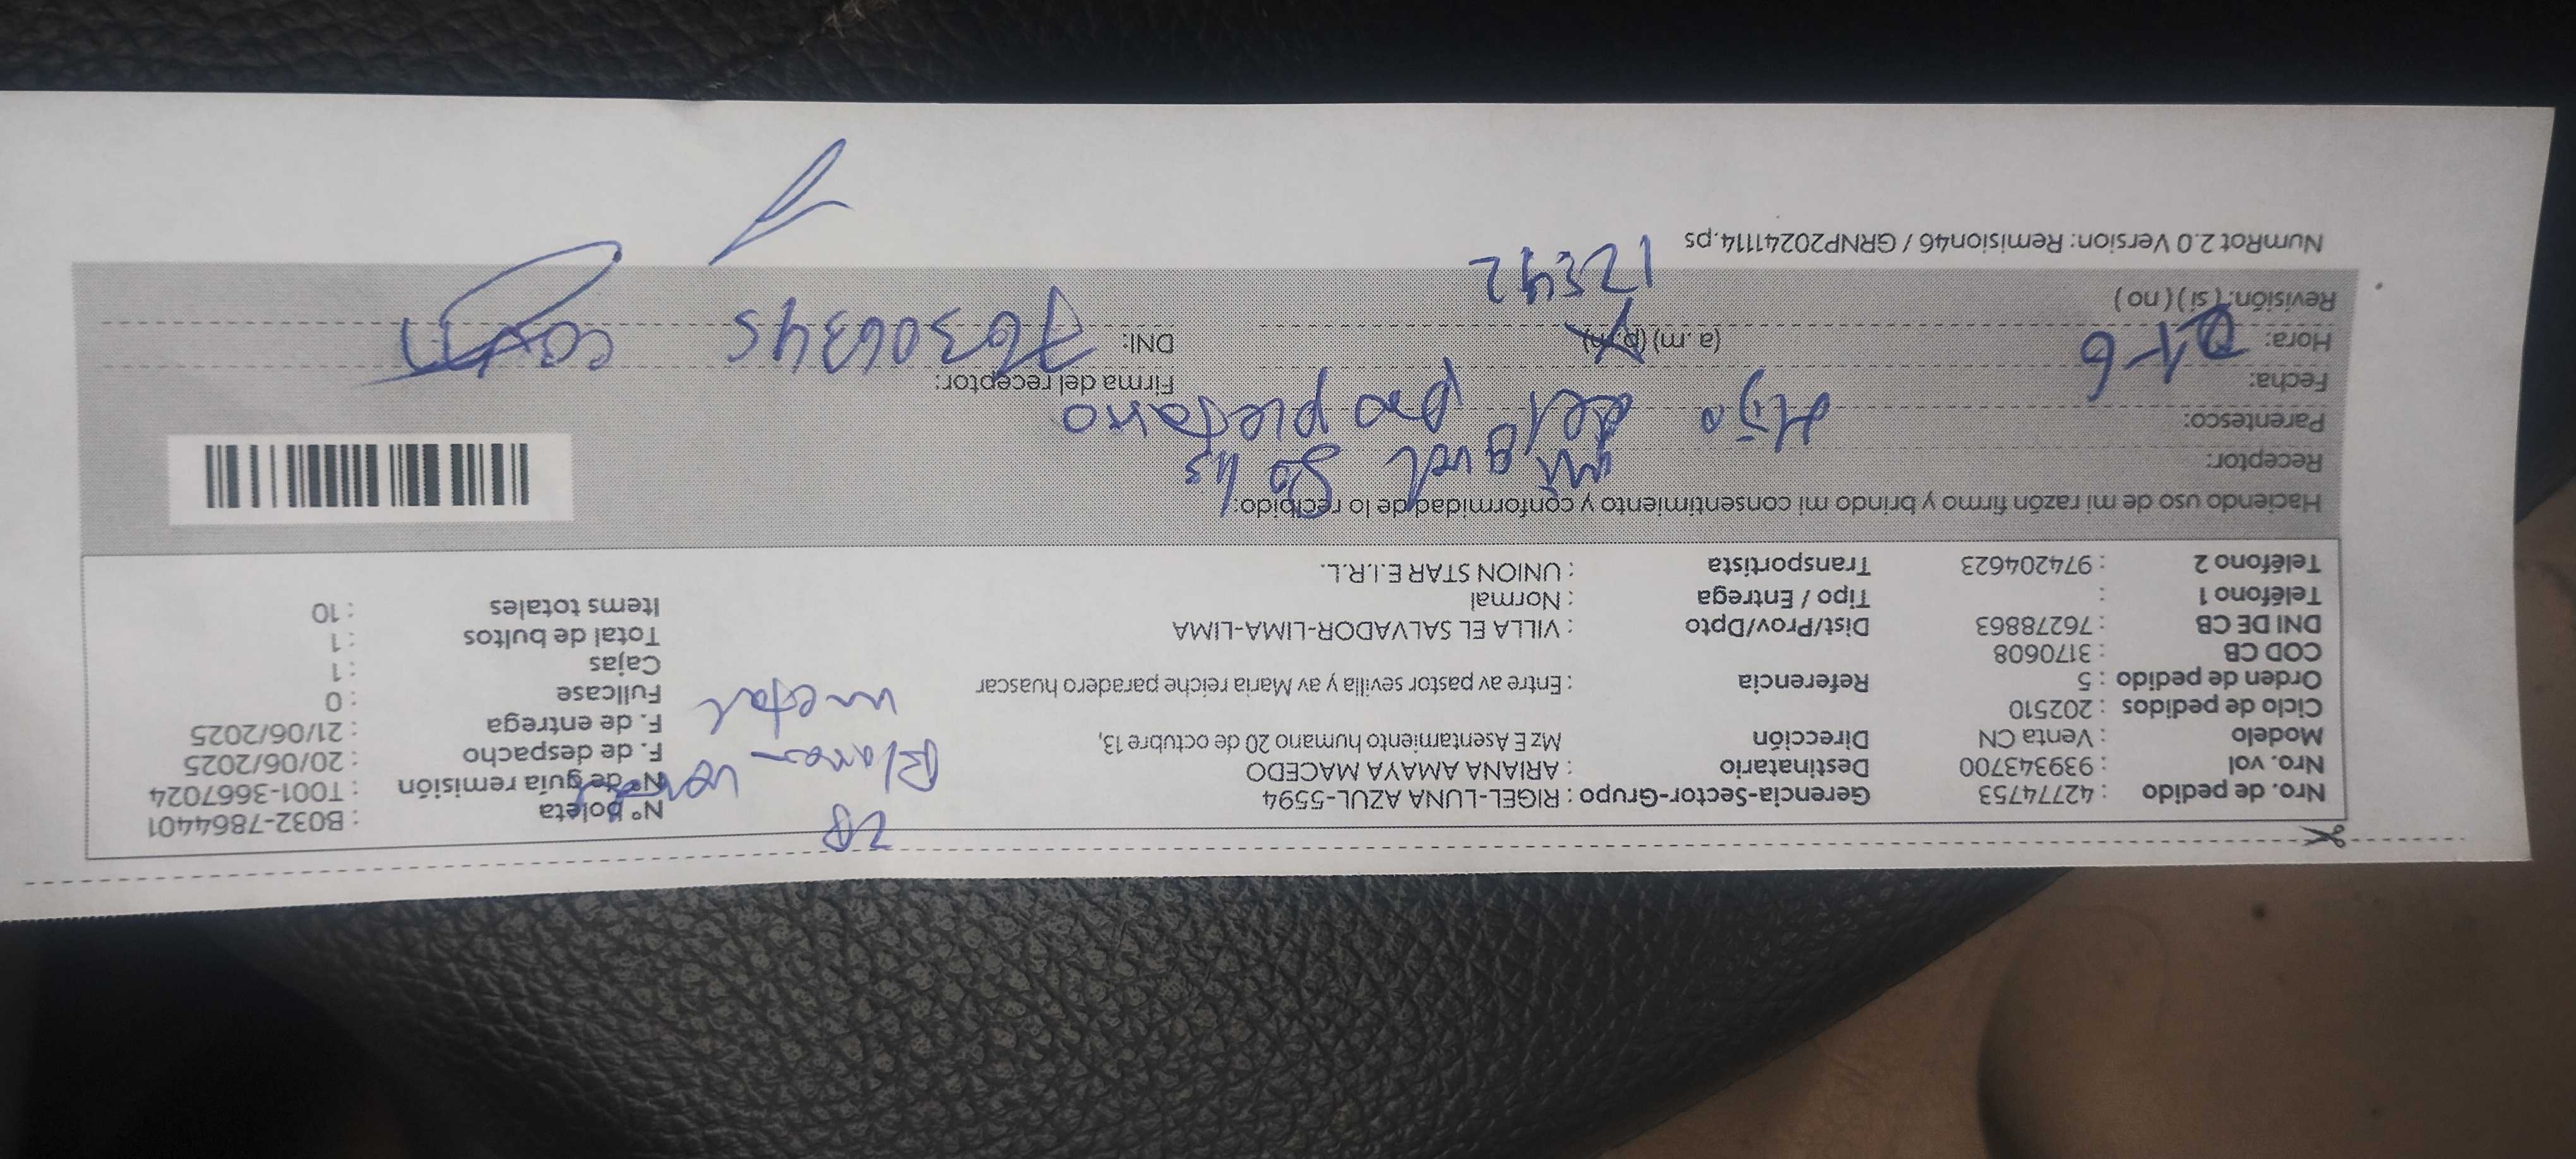 Nro. de pedido : 42774753
Nro. vol : 939343700
Modelo : Venta CN
Ciclo de pedidos : 202510
Orden de pedido : 5
COD CB : 3170608
DNI DE CB : 76278863
Teléfono 1 :
Teléfono 2 : 974204623
Gerencia-Sector-Grupo : RIGEL-LUNA AZUL-5594
Destinatario : ARIANA AMAYA MACEDO
Dirección Mz E Asentamiento humano 20 de octubre 13,
Referencia : Entre av pastor sevilla y av Maria reiche paradero huascar
Dist/Prov/Dpto : VILLA EL SALVADOR-LIMA-LIMA
Tipo / Entrega : Normal
Transportista : UNION STAR E.I.R.L.
2P
Blanco
metal
N° boleta : B032-7864401
N° de guía remisión : T001-3667024
F. de despacho : 20/06/2025
F. de entrega : 21/06/2025
Fullcase : 0
Cajas : 1
Total de bultos : 1
Items totales : 10
Haciendo uso de mi razón firmo y brindo mi consentimiento y conformidad de lo recibido:
Receptor: Miguel Solis
Parentesco: Hijo del propietario
Fecha: 21-6
Firma del receptor:
Hora: (a.m) (p.m) 12:42
DNI: 76306345
Revisión: (si) (no)
NumRot 2.0 Version: Remision46 / GRNP20241114.ps